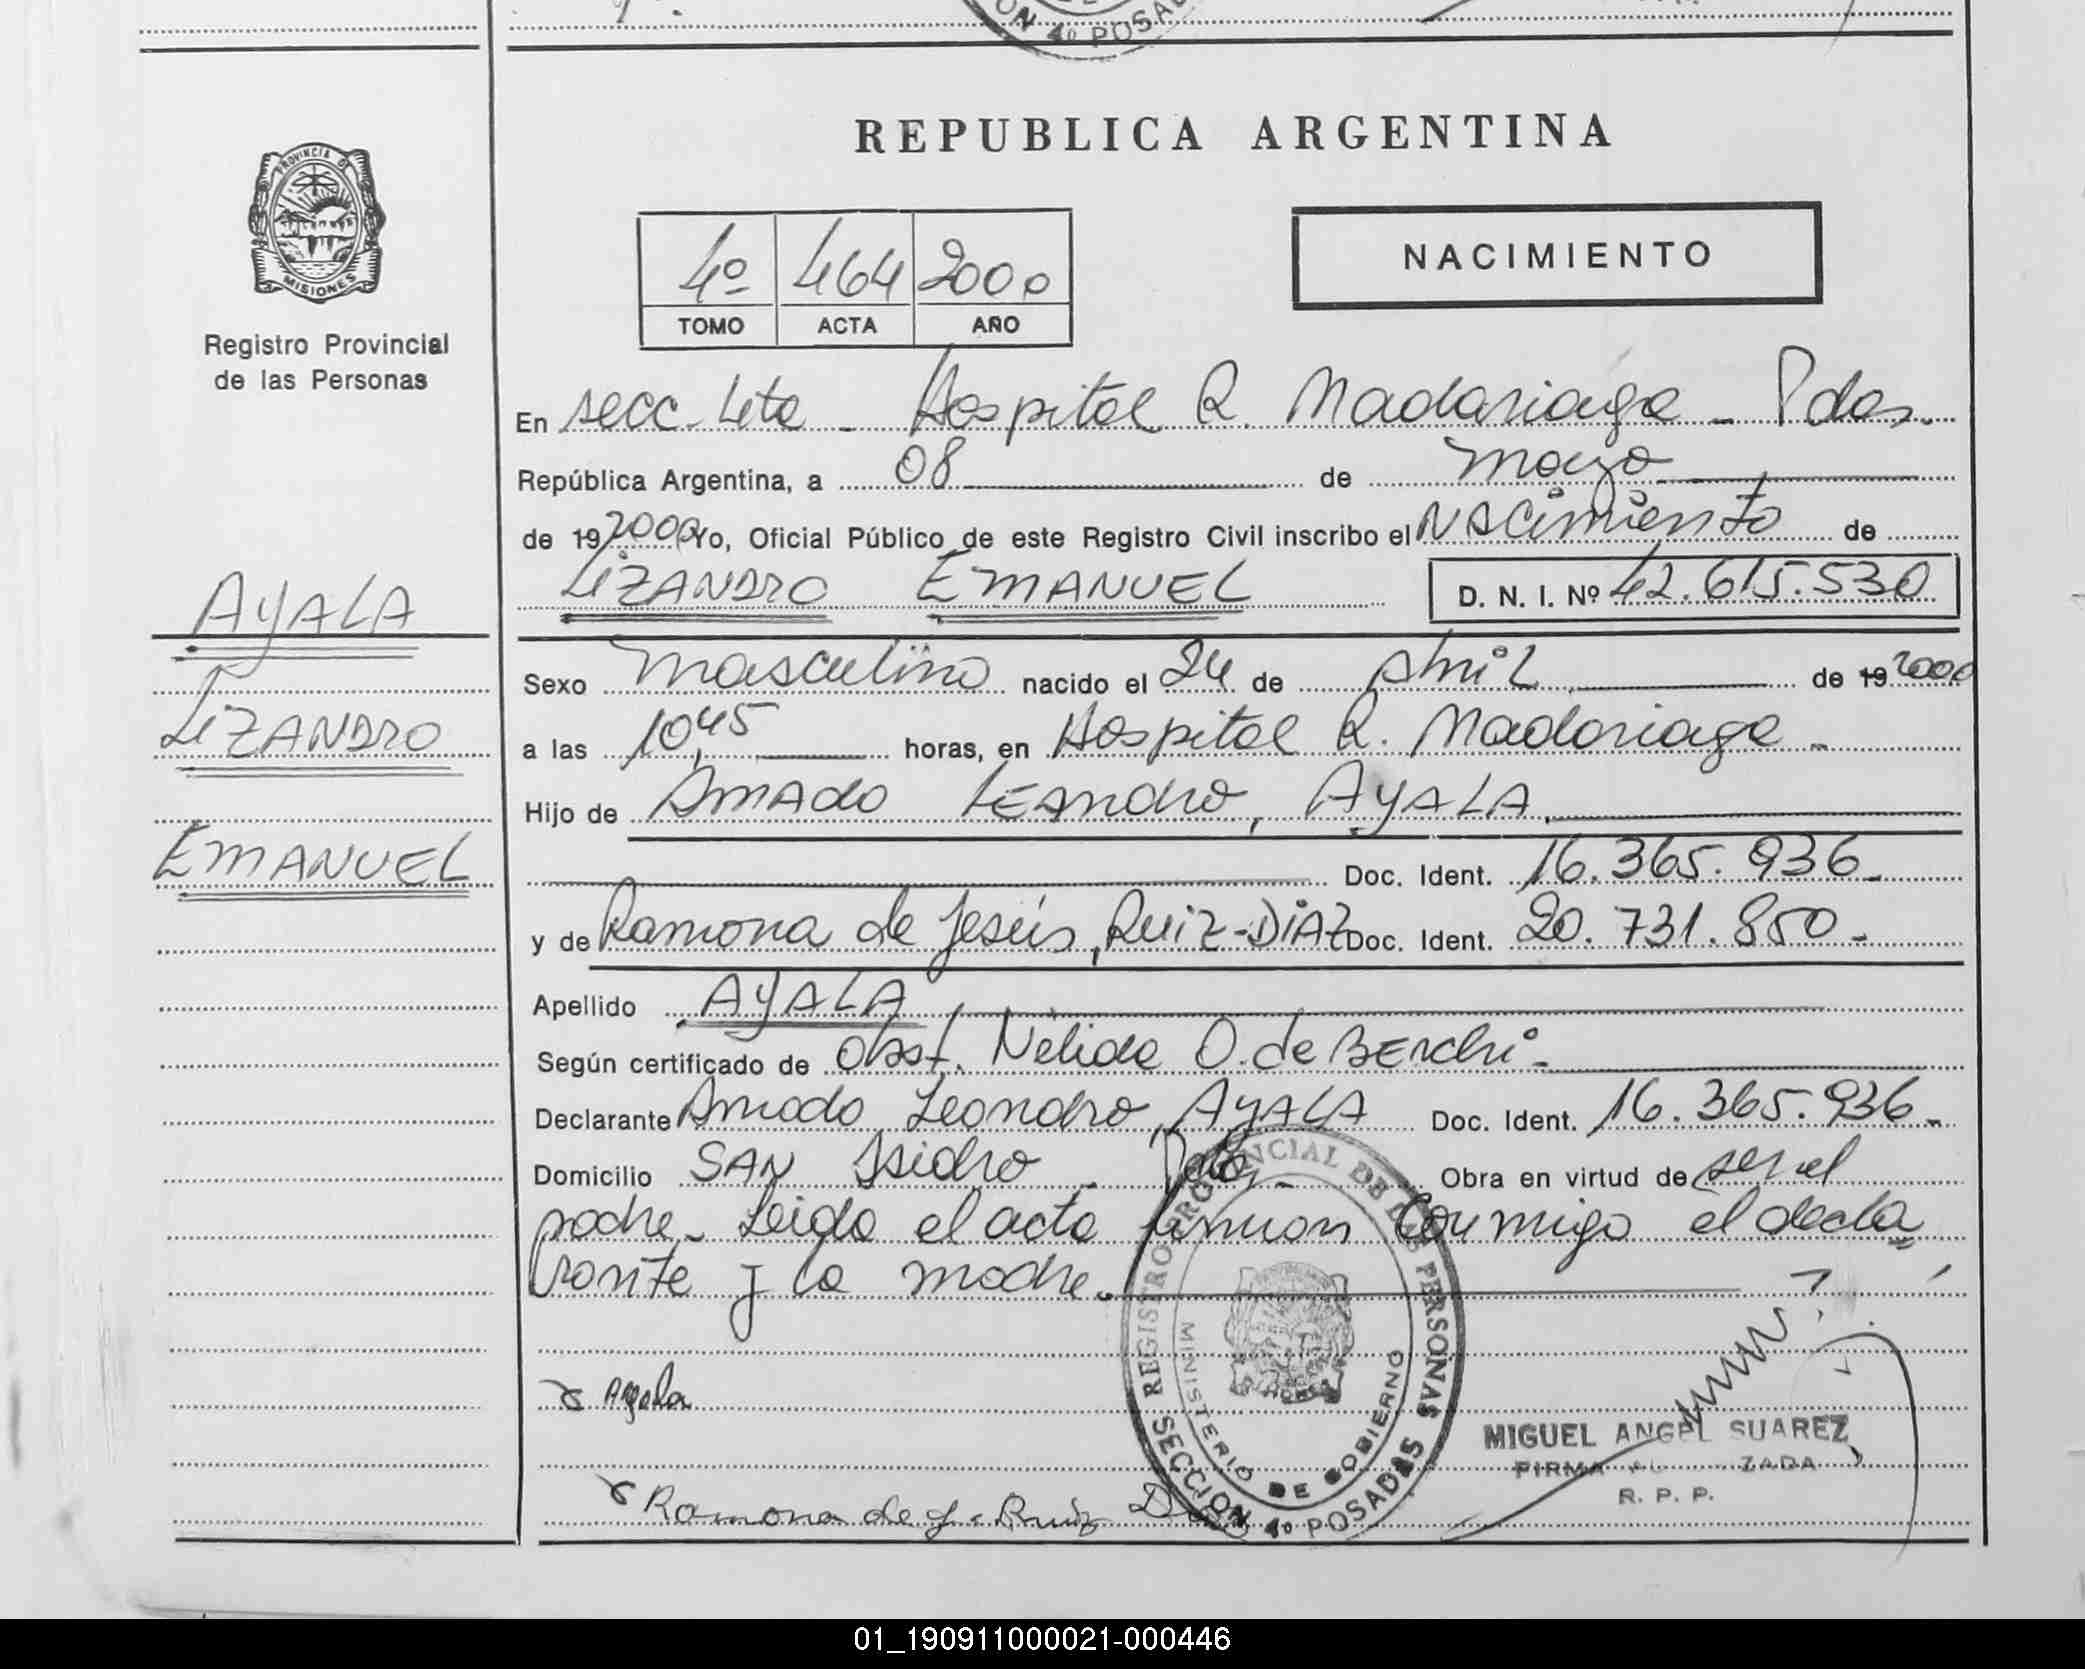 ON 4º POSAD
REPUBLICA ARGENTINA
PROVINCIA D
MISIONES
Registro Provincial
de las Personas
4º 464 2000
TOMO ACTA AÑO
NACIMIENTO
En secc. 4ta - Hospital R. Madariaga - Pdas.
República Argentina, a 08 de mayo
de 19 2000 Yo, Oficial Público de este Registro Civil inscribo el Nacimiento de
LIZANDRO EMANUEL D. N. I. Nº 42.615.530
AYALA
LIZANDRO
EMANUEL
Sexo masculino nacido el 24 de Abril de 19 2000
a las 10,45 horas, en Hospital R. Madariaga -
Hijo de Amado Leandro, AYALA
Doc. Ident. 16.365.936-
y de Ramona de Jesús, Ruiz-DIAZ Doc. Ident. 20.731.850-
Apellido AYALA
Según certificado de Obst. Nélida O. de Berchi-
Declarante Amado Leandro, AYALA Doc. Ident. 16.365.936-
Domicilio SAN Isidro - Pdas. - Obra en virtud de ser el
padre- Leida el acta firman conmigo el decla
rante y la madre.
REGISTRO PROVINCIAL DE LAS PERSONAS
MINISTERIO DE GOBIERNO
SECCION 4º POSADAS
x Ayala
MIGUEL ANGEL SUAREZ
FIRMA
R. P. P.
x Ramona de J. Ruiz D
01_190911000021-000446